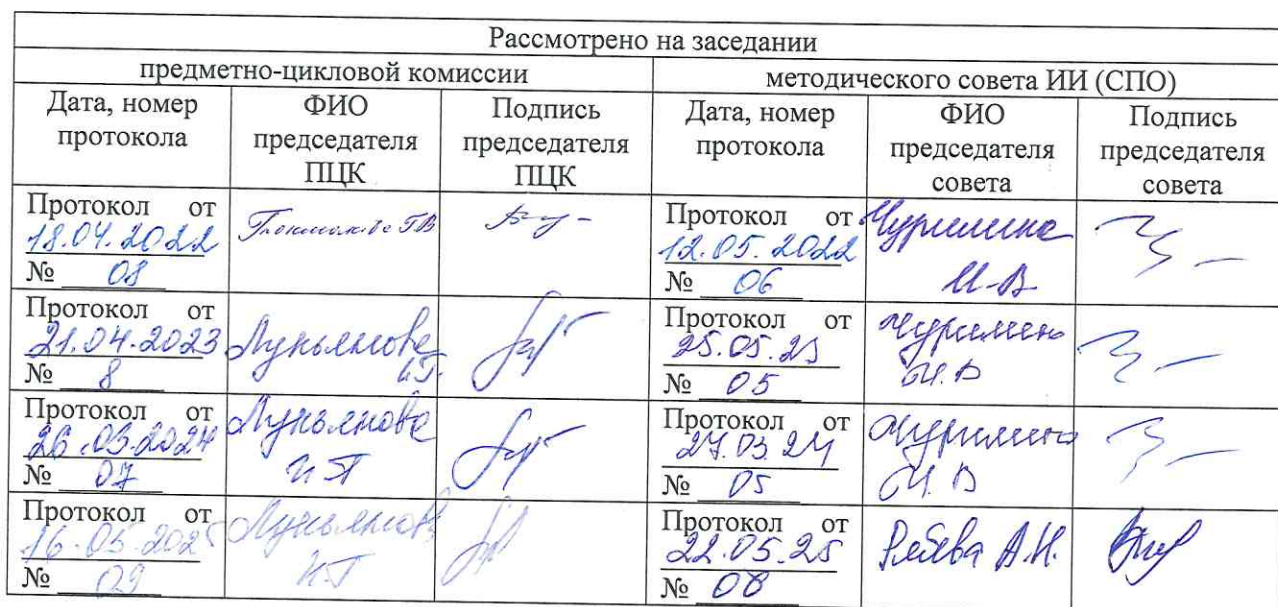 Рассмотрено на заседании
предметно-цикловой комиссии методического совета ИИ (СПО)
Дата, номер протокола ФИО председателя ПЦК Подпись председателя ПЦК Дата, номер протокола ФИО председателя совета Подпись председателя совета
Протокол от
18.04.2022
№ 08
Протокол от
12.05.2022
№ 06
Чурилина
И.В.
Протокол от
21.04.2023
№ 8
Лукьянова
И.Г.
Протокол от
25.05.23
№ 05
Чурилина
И.В
Протокол от
26.03.2024
№ 07
Лукьянова
Протокол от
27.03.24
№ 05
Чурилина
И.В
Протокол от
16.05.2025
№ 09
Лукьянова
Протокол от
22.05.25
№ 08
А.Н.